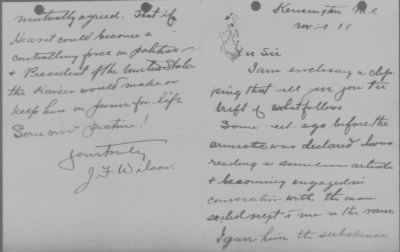 Kensington Md
Nov 11
Dear Sir
I am enclosing a clip-
ping that will give you the
trift of what follows
Some ago before the
armistice was declared I was
reading a article
& becoming engaged in
conversation with the man
next to me in the
I gave him the substance
mutually agreed. That if
Hearst could become a
controlling force in politics
& President of the United States
the Kaiser would make or
keep him in power for life
Some picture!
Yours truly
J. F. Wilson